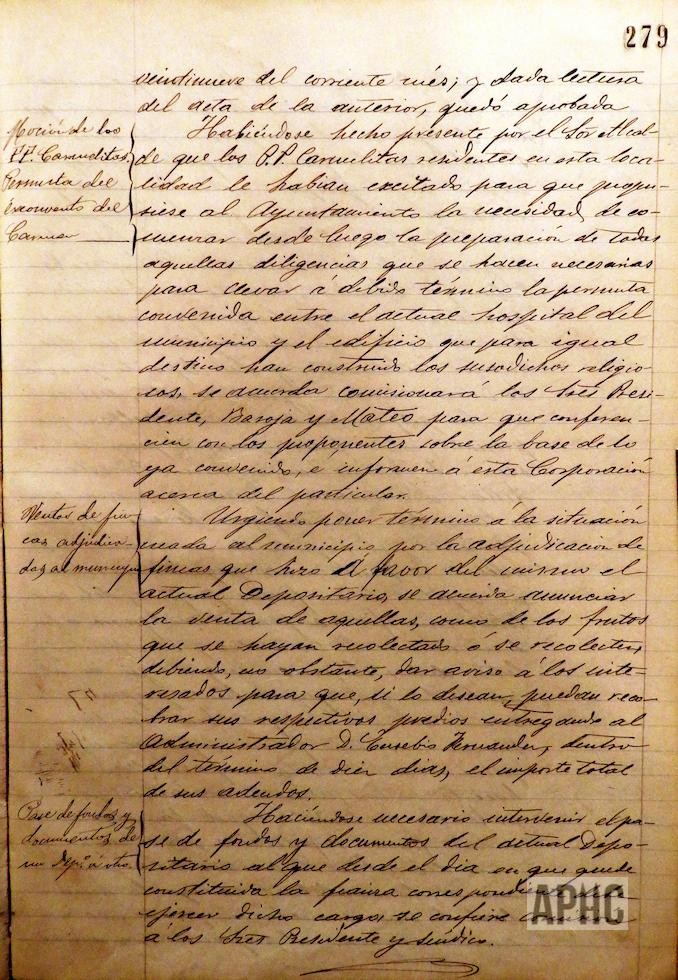 279
veintinueve del corriente més; y dada lectura
del acta de la anterior, quedó aprobada
Moción de los
PP. Carmelitas.
Permuta del
Exconvento del
Carmen
Habiéndose hecho presente por el Sor Alcal-
de que los P.P. Carmelitas residentes en esta loca-
lidad le habian excitado para que propu-
siese al Ayuntamiento la necesidad de co-
menzar desde luego la preparación de todas
aquellas diligencias que se hacen necesarias
para llevar á debido término la permuta
convenida entre el actual hospital del
municipio y el edificio que para igual
destino han construido los susodichos religio-
sos, se acuerda comisionar á los Sres Presi-
dente, Baroja y Mateo para que conferen-
cien con los proponentes sobre la base de lo
ya convenido, e informen á esta Corporación
acerca del particular.
Ventas de fin-
cas adjudica-
das al municipio
Urgiendo poner término á la situación
creada al municipio por la adjudicación de
fincas que hizo á favor del mismo el
actual Depositario, se acuerda anunciar
la venta de aquellas, como de los frutos
que se hayan recolectado ó se recolecten,
debiendo, no obstante, dar aviso á los inte-
resados para que, si lo desean, puedan reco-
brar sus respectivos predios entregando al
Administrador D. Eusebio Fernandez, dentro
del término de diez dias, el importe total
de sus adeudos.
Pase de fondos y
documentos de
un Depº á otro
Haciéndose necesario intervenir el pa-
se de fondos y documentos del actual Depo-
sitario al que desde el dia en que quede
constituida la fianza
ejercer dicho cargo, se confiere
á los Sres Presidente y Síndico.
APHC